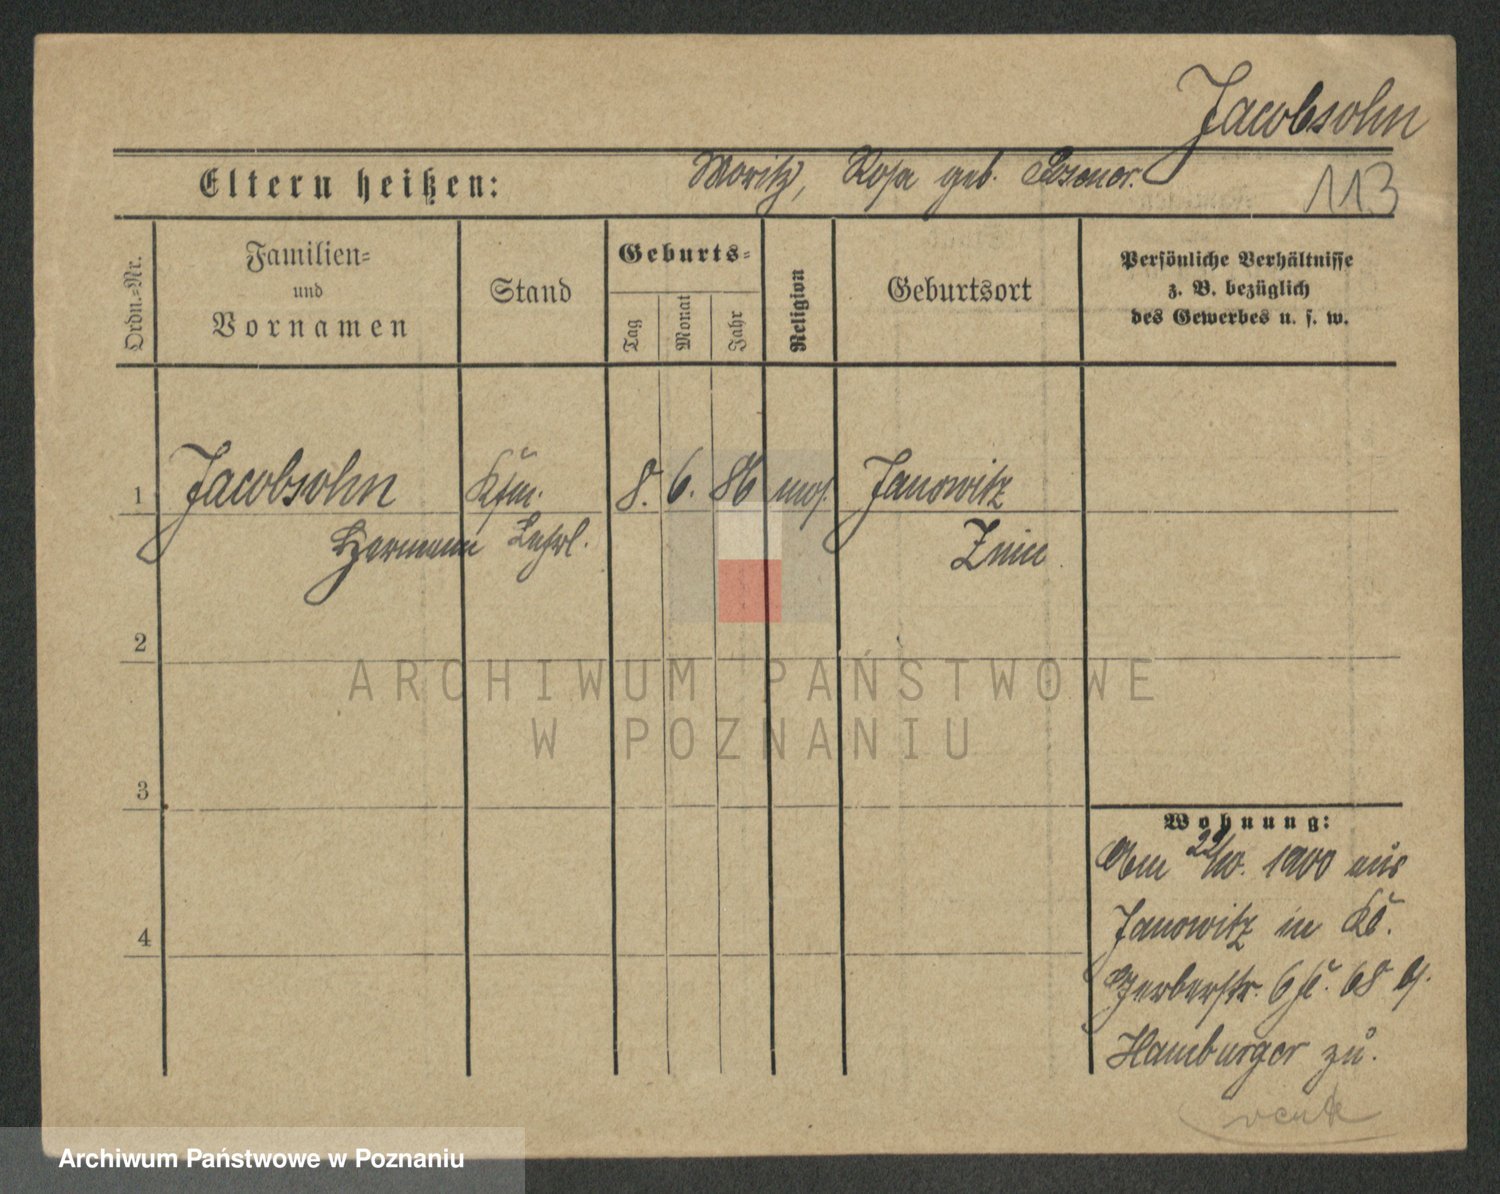 Jacobsohn
Eltern heißen: Moritz, Rosa geb. Posener.
113
Ordn.-Nr.
Familien-
und
Vornamen
Stand
Geburts-
Tag
Monat
Jahr
Religion
Geburtsort
Persönliche Verhältnisse
z. B. bezüglich
des Gewerbes u. s. w.
1 Jacobsohn Kfm. 8. 6. 86 mos. Janowitz
Hermann Lehrl. Znin
2
ARCHIWUM PAŃSTWOWE
W POZNANIU
3
Wohnung:
Am 22/10. 1900 aus
Janowitz in
4
Gerberstr. 6 68
Hamburger zu.
Archiwum Państwowe w Poznaniu